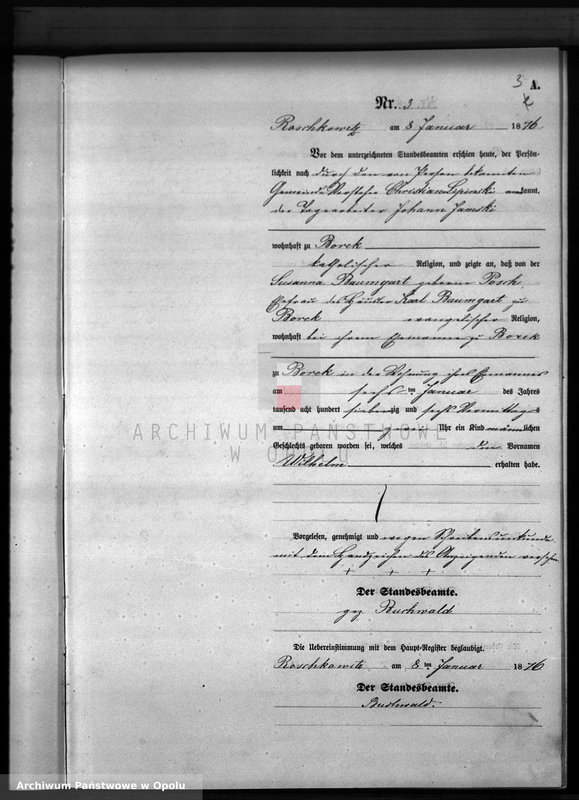 3 A.
Nr. 3
Roschkowitz am 8 Januar 1876
Vor dem unterzeichneten Standesbeamten erschien heute, der Persön-
lichkeit nach durch den von Person bekannten
Gemeinde Vorsteher Christian Lipinski anerkannt,
der Tagearbeiter Johann Jamski
wohnhaft zu Borek
katholischer Religion, und zeigte an, daß von der
Susanna Baumgart geborene Posch
Ehefrau des Häusler Karl Baumgart zu
Borek evangelischer Religion,
wohnhaft bei ihrem Ehemanne zu Borek
zu Borek in der Wohnung ihres Ehemannes
am sechsten Januar des Jahres
tausend acht hundert siebenzig und sechs Vormittags
um Uhr ein Kind männlichen
Geschlechts geboren worden sei, welches den Vornamen
Wilhelm erhalten habe.
ARCHIWUM PAŃSTWOWE
W OPOLU
Vorgelesen, genehmigt und wegen Schreibensunkunde
mit dem Handzeichen des Anzeigenden versehen
+ + +
Der Standesbeamte.
gez Buchwald
Die Uebereinstimmung mit dem Haupt-Register beglaubigt.
Roschkowitz am 8 ten Januar 1876
Der Standesbeamte.
Buchwald.
Archiwum Państwowe w Opolu